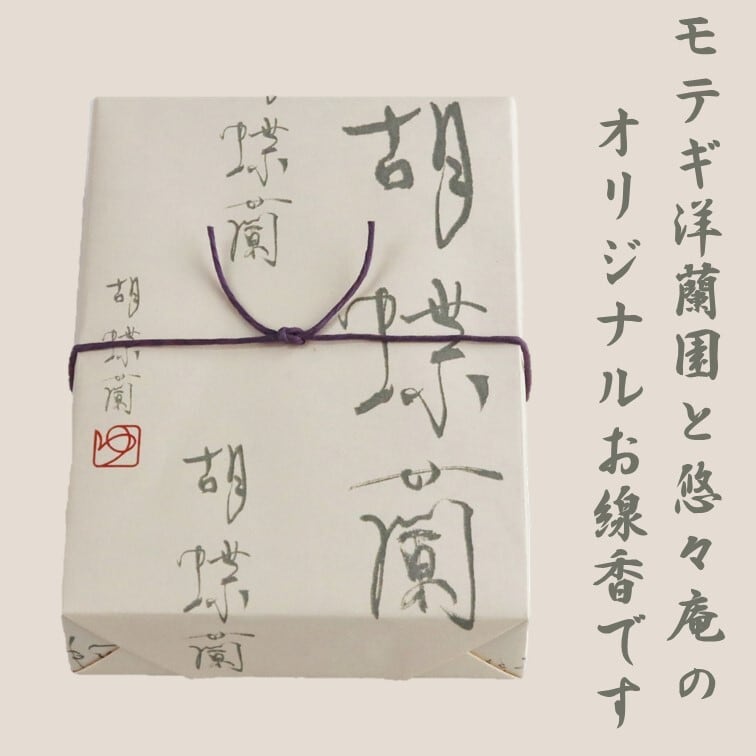 モテギ洋蘭園と悠々庵の
オリジナルお線香です
胡蝶蘭
蝶蘭
胡蝶蘭
ゆ
胡蝶蘭